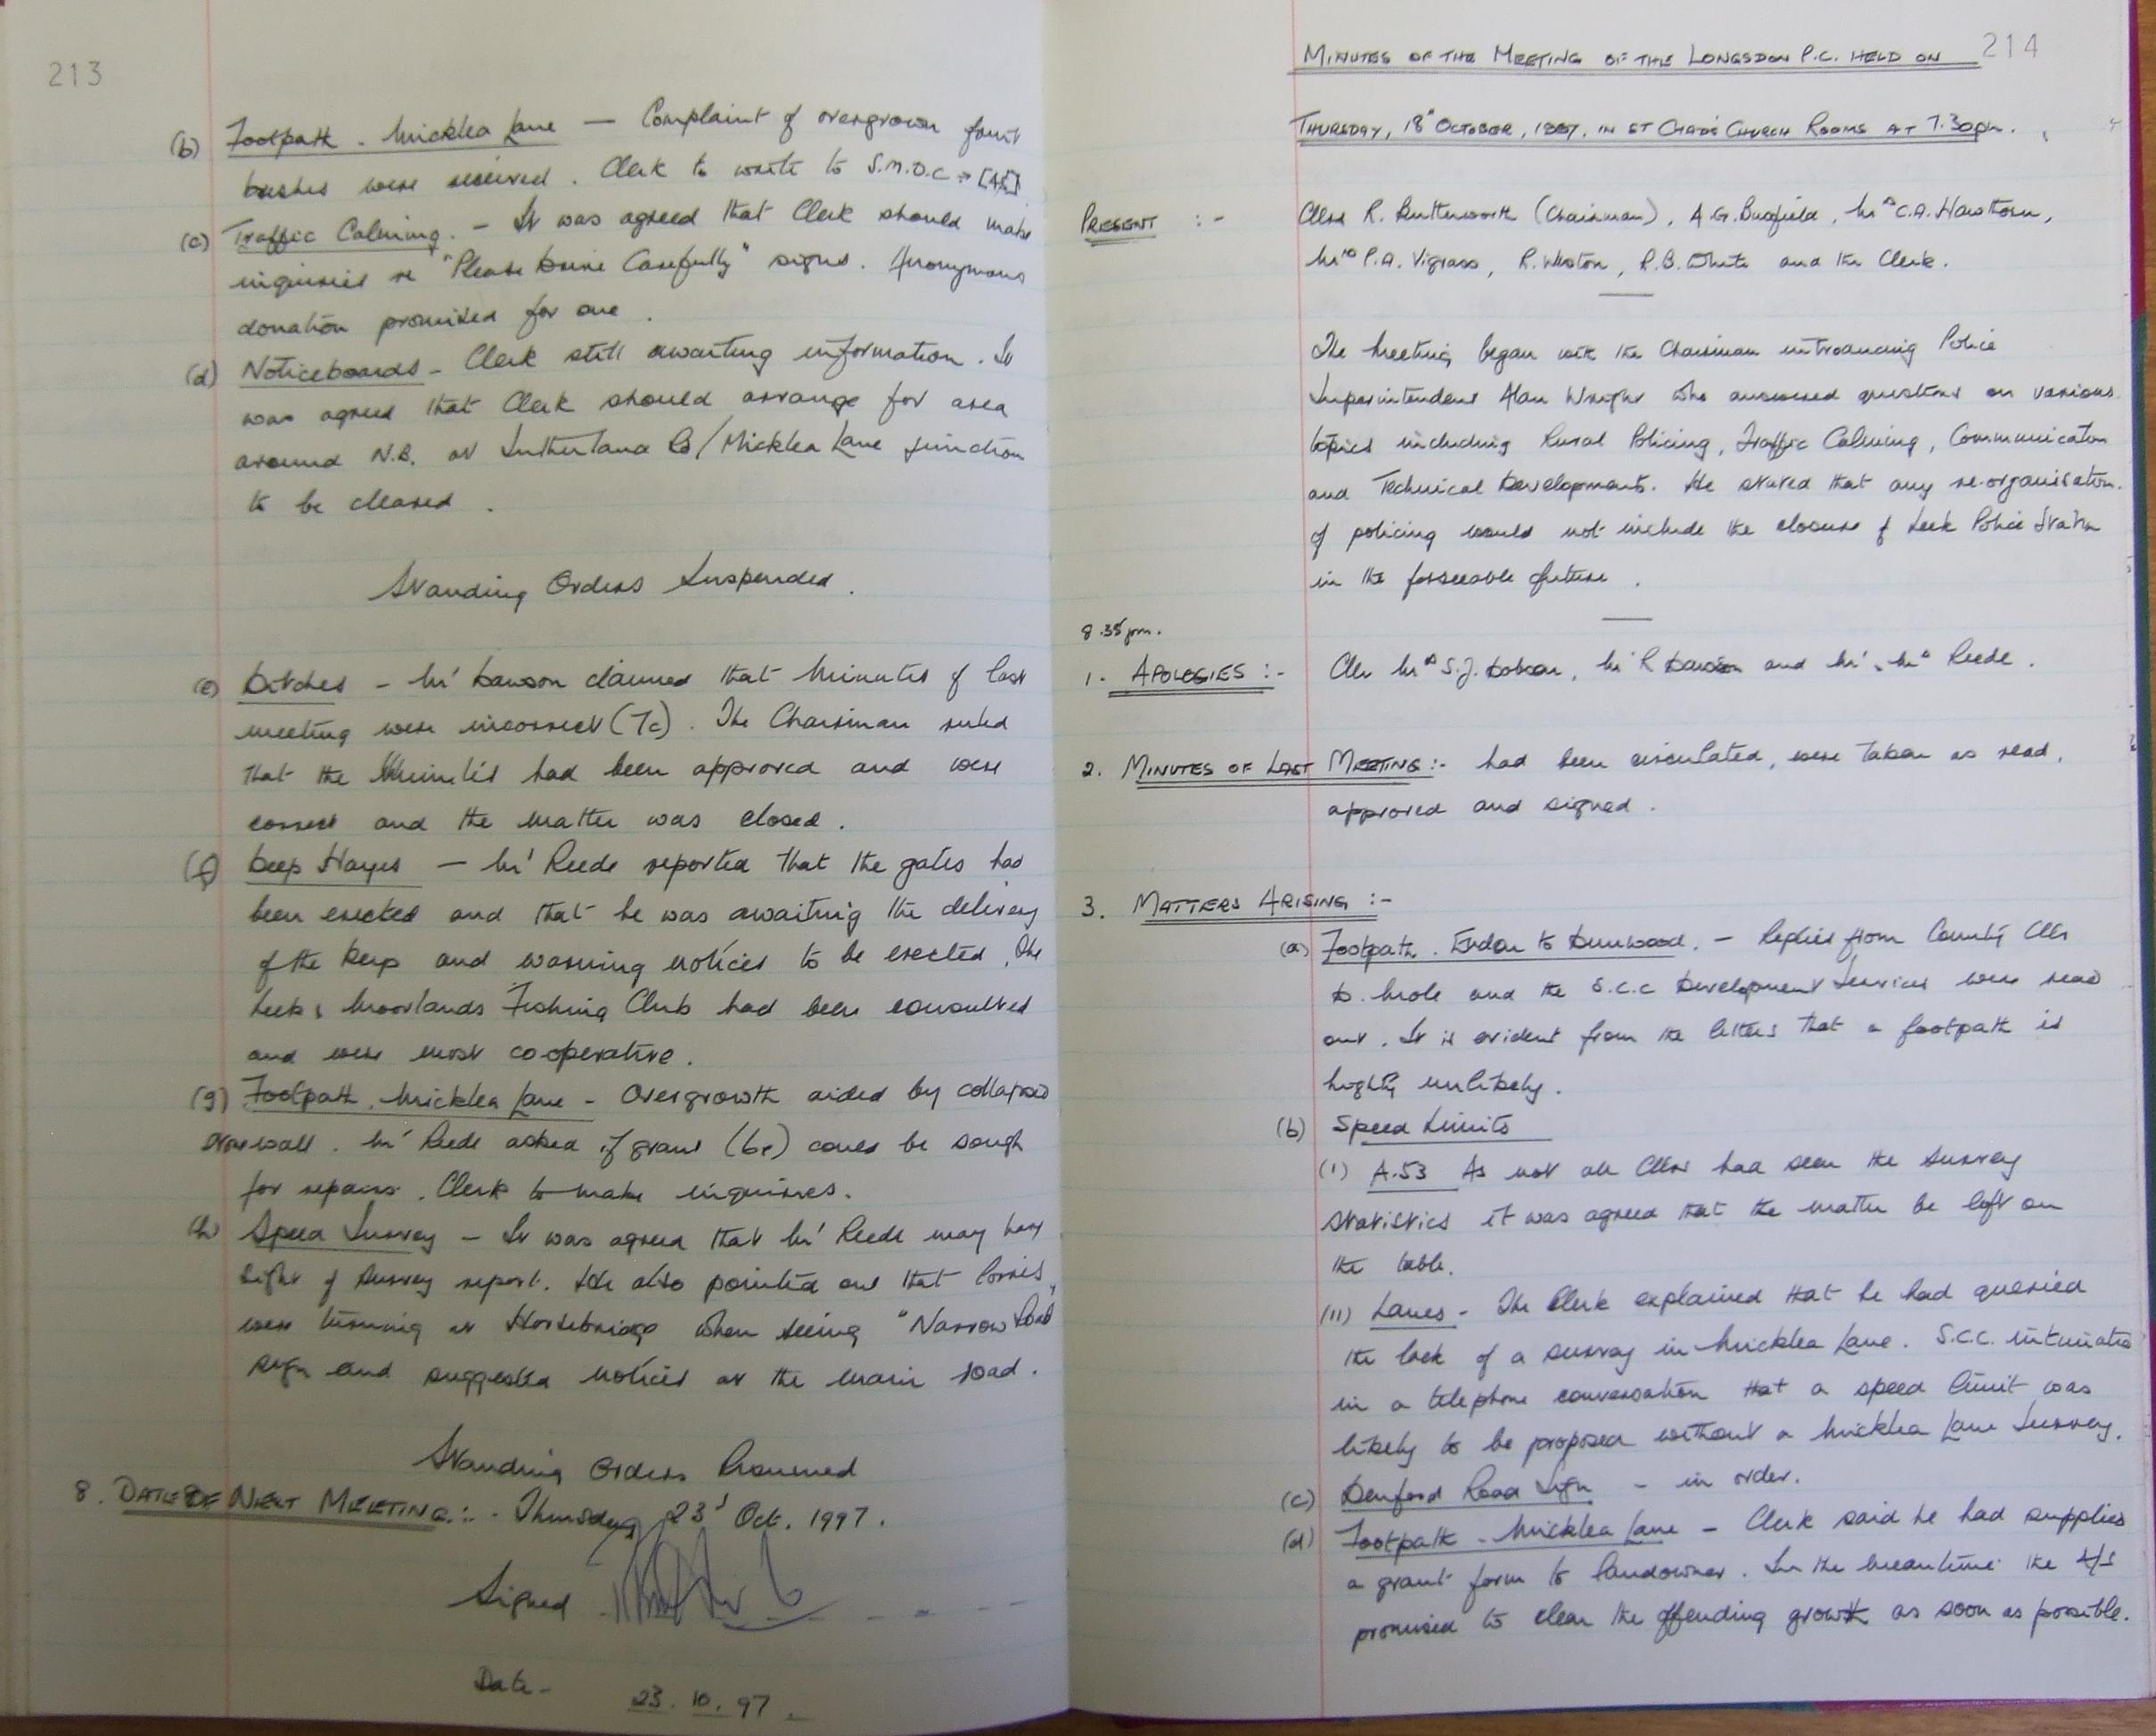 213
(b) Footpath. Micklea Lane — Complaint of overgrown fruit
bushes were received. Clerk to write to S.M.D.C
(c) Traffic Calming. - It was agreed that Clerk should make
inquiries re "Please Drive Carefully" signs. Anonymous
donation promised for one.
(d) Noticeboards - Clerk still awaiting information. It
was agreed that Clerk should arrange for area
around N.B. at Sutherland Rd/Micklea Lane junction
to be cleared.
Standing Orders Suspended.
(e) Ditches - Mr Dawson claimed that Minutes of last
meeting were incorrect (7c). The Chairman ruled
that the Minutes had been approved and were
correct and the matter was closed.
(f) Deep Hayes — Mr Reede reported that the gates had
been erected and that he was awaiting the delivery
of the keys and warning notices to be erected. The
Leek & Moorlands Fishing Club had been consulted
and were most cooperative.
(g) Footpath. Micklea Lane - Overgrowth aided by collapsed
stonewall. Mr Reede asked if grant (6e) could be sough
for repairs. Clerk to make inquiries.
(h) Speed Survey - It was agreed that Mr Reede may have
sight of survey report. He also pointed out that lorries
were turning at Horsebridge when seeing "Narrow Road"
sign and suggested notices at the main road.
Standing Orders Resumed
8. DATE OF NEXT MEETING:- Thursday 23rd Oct. 1997.
Signed
Date - 23.10.97.
214
MINUTES OF THE MEETING OF THE LONGSDON P.C. HELD ON
THURSDAY, 18th OCTOBER, 1997, IN ST CHAD'S CHURCH ROOMS AT 7.30pm.
PRESENT :- Cllrs R. Butterworth (Chairman), A.G. Buxfield, Mrs C.A. Hawthorn,
Mrs P.A. Vigrass, R. Weston, R.B. White and the Clerk.
The Meeting began with the Chairman introducing Police
Superintendent Alan Wright who answered questions on various
topics including Rural Policing, Traffic Calming, Communication
and Technical Developments. He stated that any re-organisation
of policing would not include the closure of Leek Police Station
in the forseeable future.
8.35pm.
1. APOLOGIES :- Cllr Mrs S.J. Dobson, Mr R Dawson and Mr & Mrs Reede.
2. MINUTES OF LAST MEETING:- had been circulated, were taken as read,
approved and signed.
3. MATTERS ARISING :-
(a) Footpath. Endon to Dunwood. - Replies from County Cllr
D. Mole and the S.C.C Development Services were read
out. It is evident from the letters that a footpath is
highly unlikely.
(b) Speed Limits
(i) A.53 As not all Cllrs had seen the survey
statistics it was agreed that the matter be left on
the table.
(ii) Lanes - The Clerk explained that he had queried
the lack of a survey in Micklea Lane. S.C.C. intimated
in a telephone conversation that a speed limit was
likely to be proposed without a Micklea Lane Survey.
(c) Denford Road Sign - in order.
(d) Footpath - Micklea Lane - Clerk said he had supplied
a grant form to landowner. In the meantime the
promised to clear the offending growth as soon as possible.